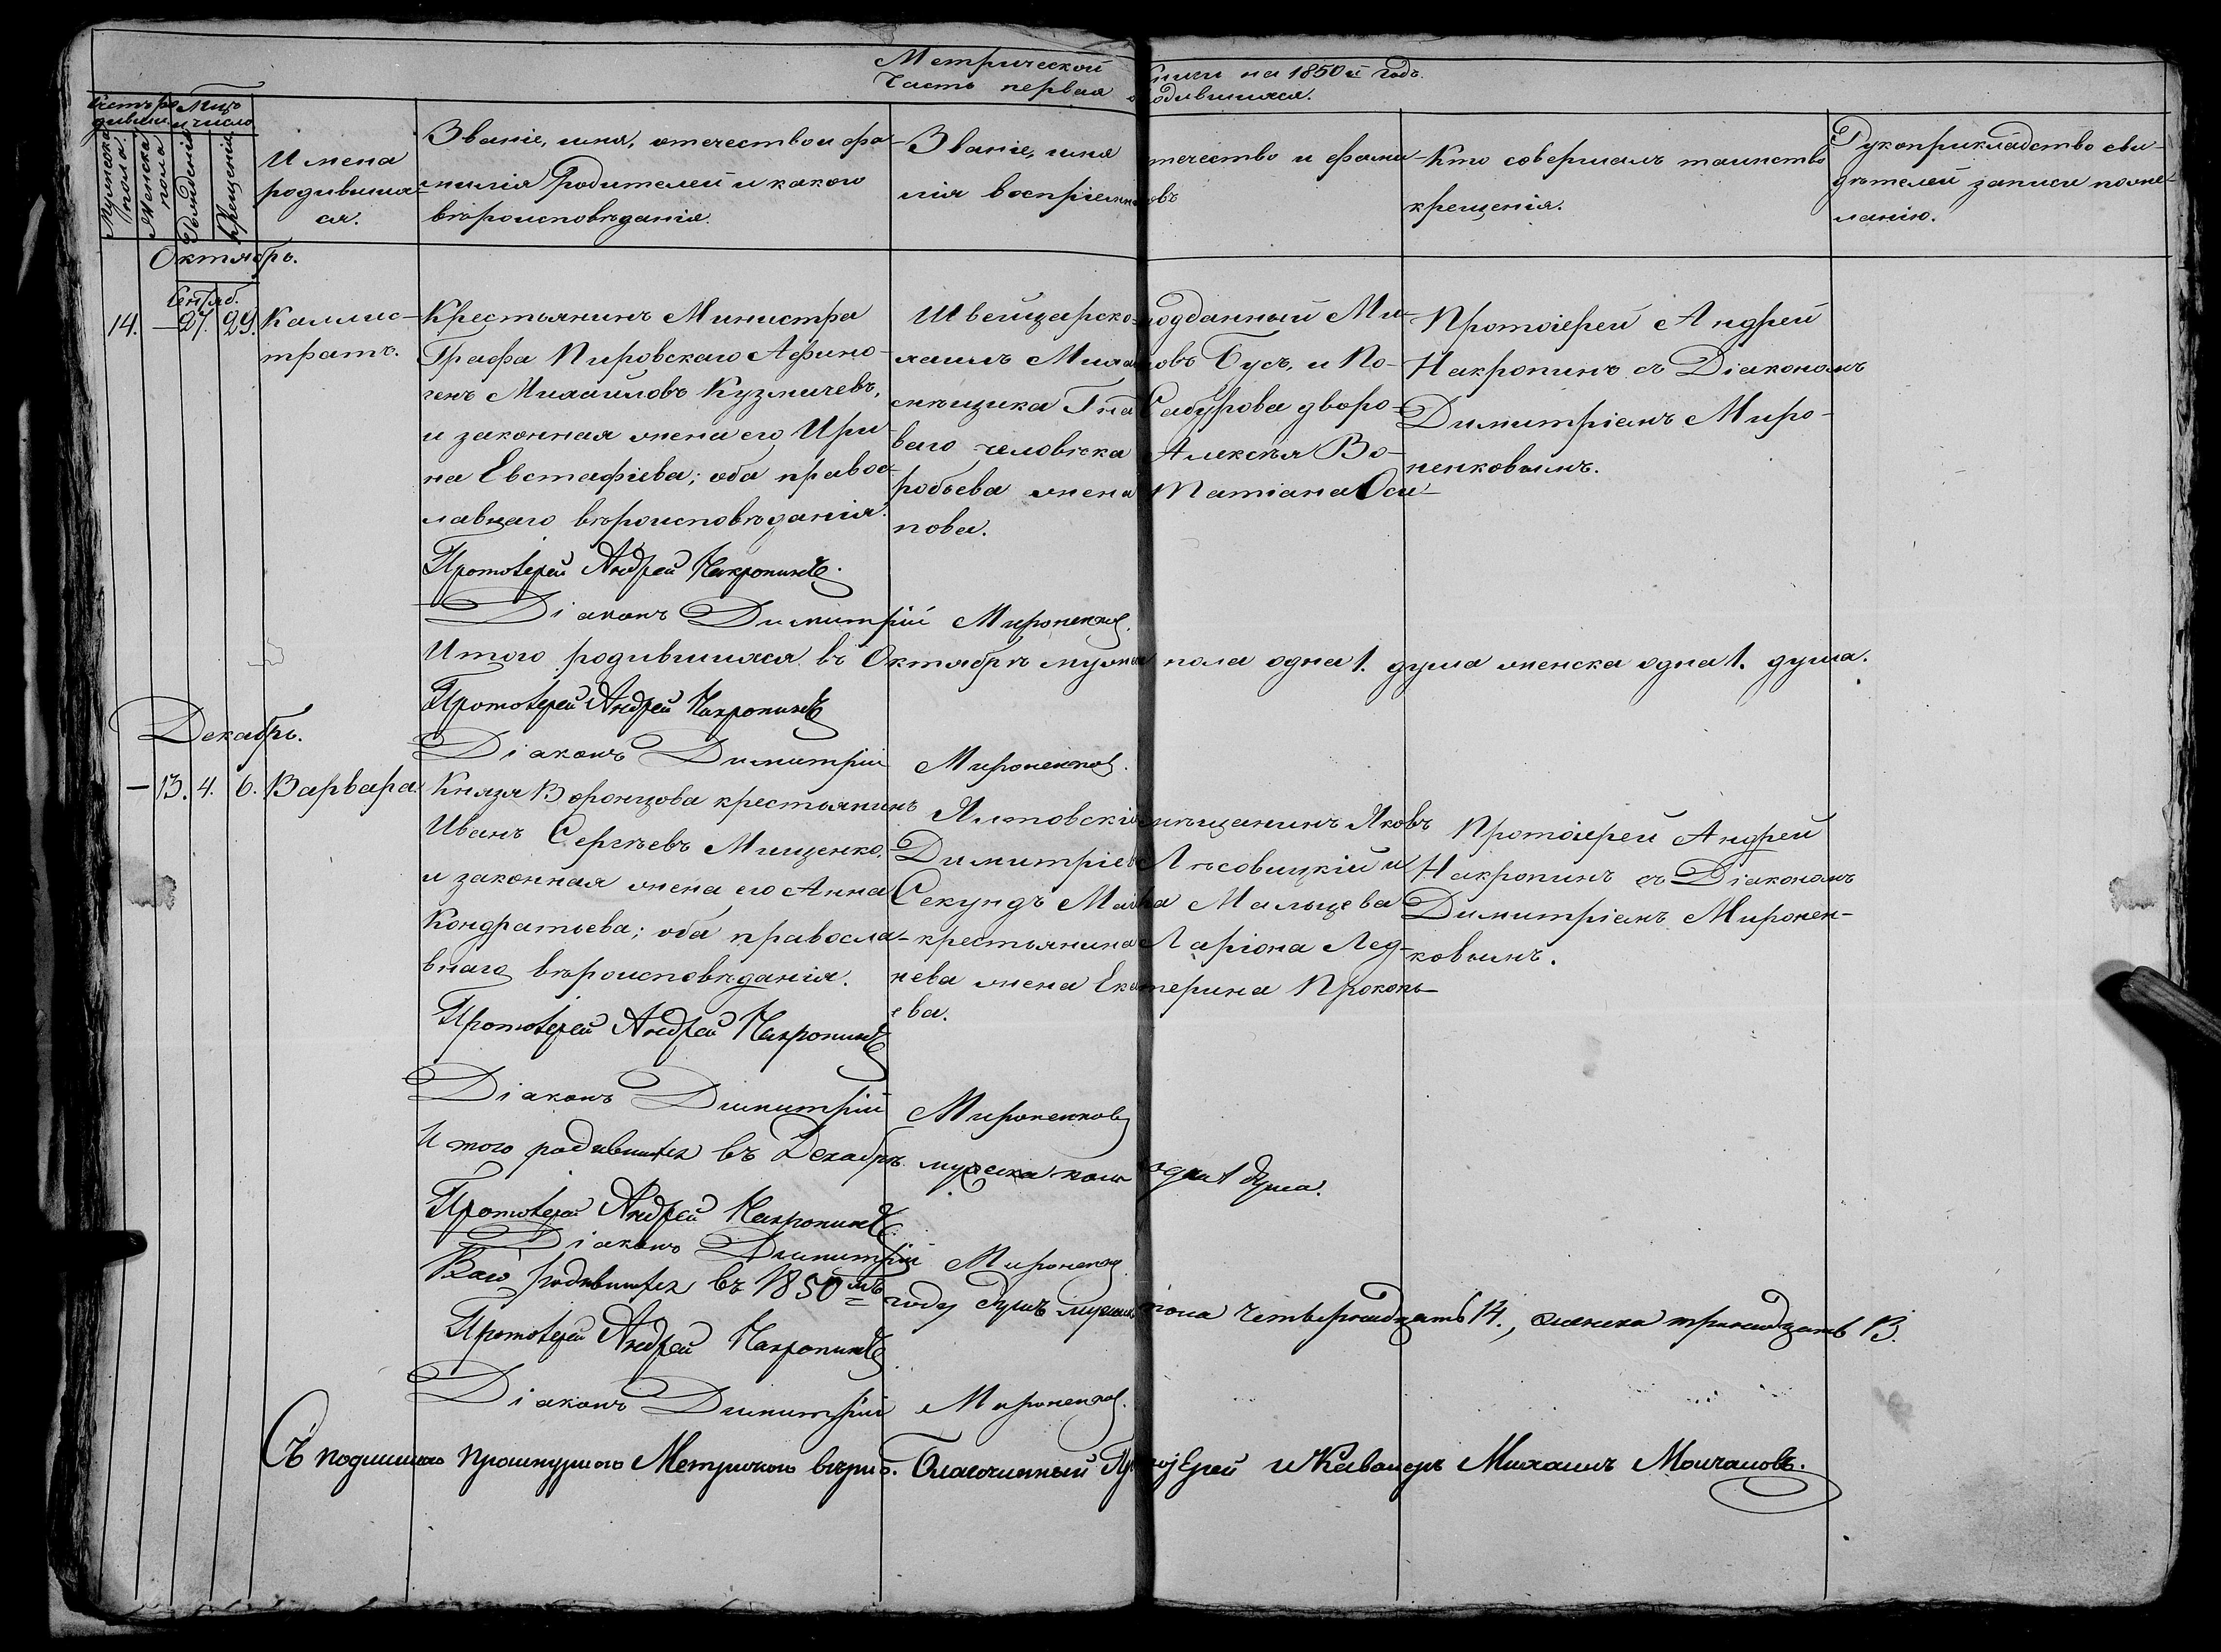 Метрической книги на 1850й годъ.
Часть первая о родившихся.
Счетъ ро
дивших.
Мцъ
и число
Мужеска
пола.
Женска
пола
Рожденія
Крещенія.
Имена
родивших
ся.
Званіе, имя, отечество и фа-
милія Родителей и какого
вѣроисповѣданія.
Званіе, имя отечество и фами-
лія воспріемниковъ
Кто совершалъ таинство
крещенія.
Рукоприкладство сви-
дѣтелей записи по же-
ланію.
Октябрь.
Сентяб.
14. — 27. 29. Каллис-
тратъ.
Крестьянинъ Министра
Графа Пировскаго Афино-
генъ Михаиловъ Кузмичевъ,
и законная жена его Ири-
на Евстафіева; оба правос-
лавнаго вѣроисповѣданія.
Швейцарско-подданный Ми-
хаилъ Михаиловъ Бусъ, и По-
мѣщика Гна Сабурова дворо-
ваго человѣка Алексѣя Во-
робьева жена Татіана Оси-
пова.
Протоіерей Андрей
Накропинъ съ Діакономъ
Димитріемъ Миро-
ненковымъ.
Протоіерей Андрей Накропинъ.
Діаконъ Димитрій Мироненков.
Итого родившихся въ Октябрѣ мужска пола одна 1. душа женска одна 1. душа.
Протоіерей Андрей Накропинъ
Діаконъ Димитрій Мироненков.
Декабрь.
— 13. 4. 6. Варвара.
Князя Воронцова крестьянинъ
Иванъ Сергѣевъ Мищенко,
и законная жена его Анна
Кондратьева; оба правосла-
внаго вѣроисповѣданія.
Ялтовскій мѣщанинъ Яковъ
Димитріевъ Лѣсовицкій и
Секундъ Маіора Мальцева
крестьянина Ларіона Лед-
нева жена Екатерина Прокопь-
ева.
Протоіерей Андрей
Накропинъ съ Діакономъ
Димитріемъ Миронен-
ковымъ.
Протоіерей Андрей Накропинъ
Діаконъ Димитрій Мироненков
Итого родившихся въ Декабрѣ мужеска пола одна 1 душа.
Протоіерей Андрей Накропинъ.
Діаконъ Димитрій Мироненков
Всего родившихся въ 1850мъ году душъ мужеска пола четырнадцать 14., женска тринадцать 13.
Протоіерей Андрей Накропинъ
Діаконъ Димитрій Мироненков.
Съ подлиннаго Метрическою вѣрно. Благочинный Протоіерей и Кавалеръ Михаилъ Молчановъ.